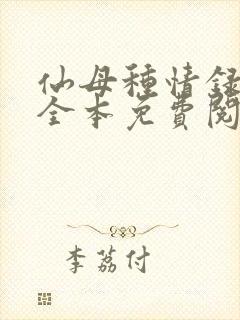 仙母種情録
全本免費閱
李荔付